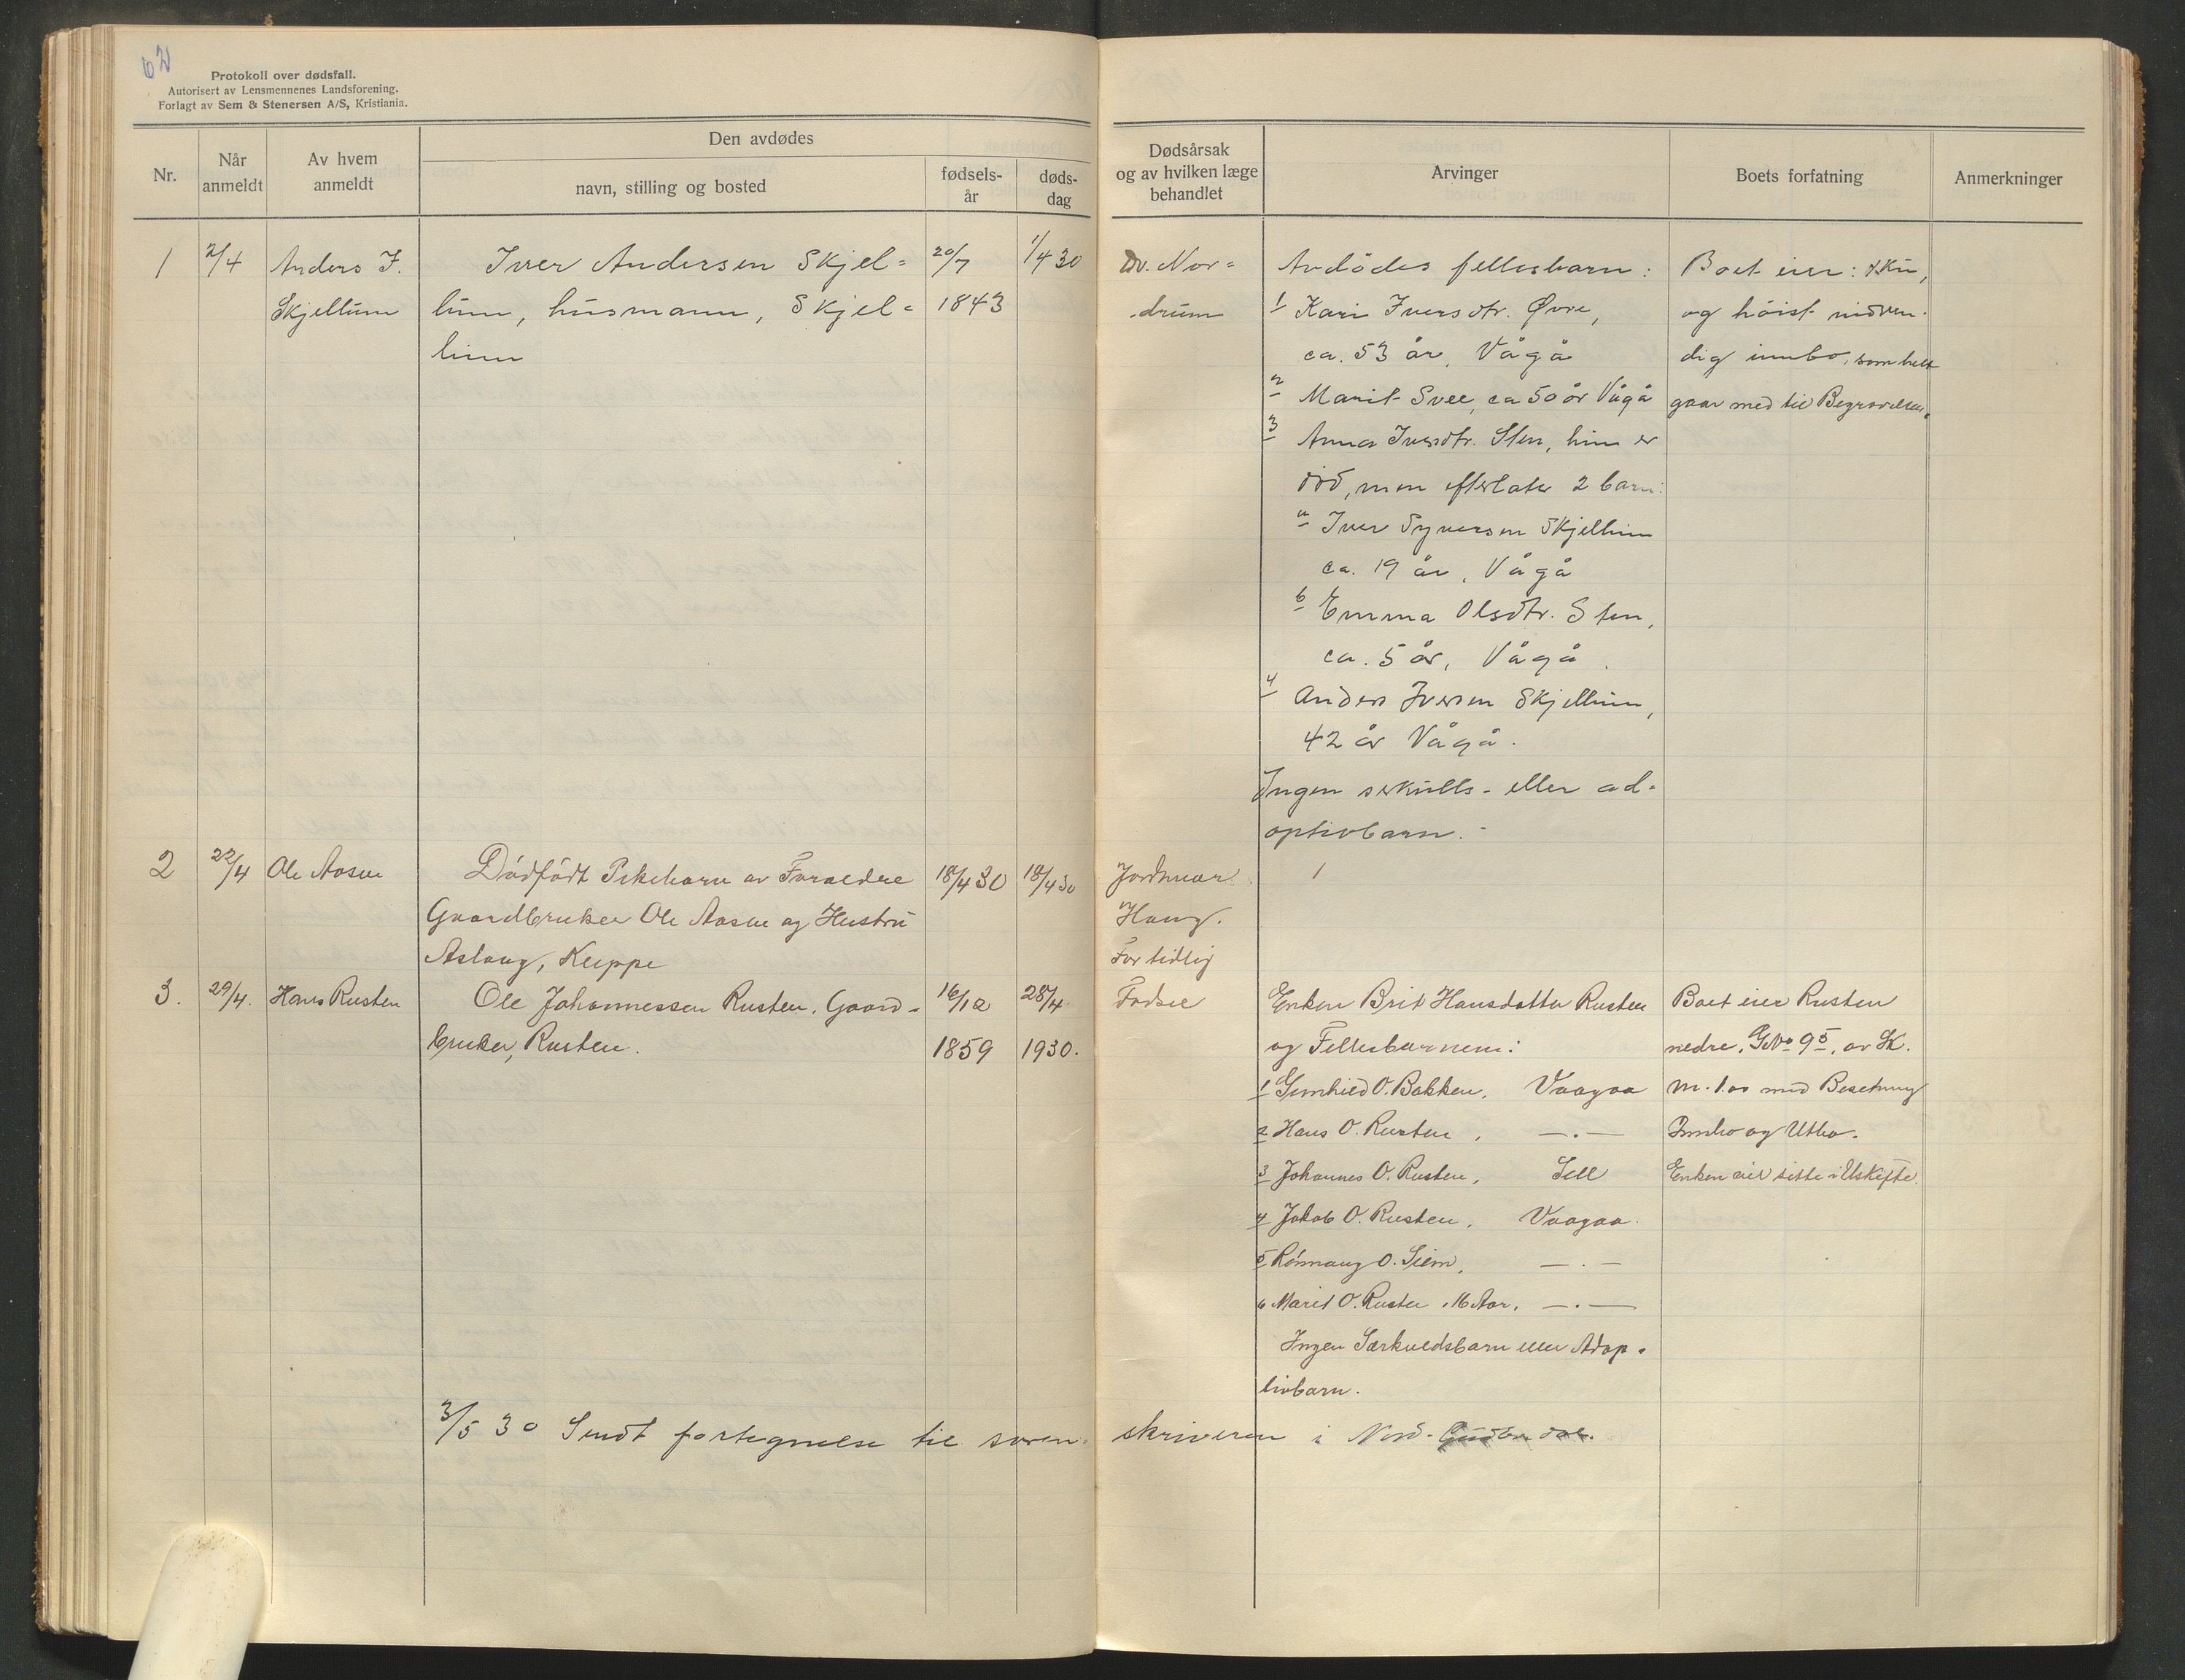 62
Protokoll over dødsfall.
Autorisert av Lensmennenes Landsforening.
Forlagt av Sem & Stenersen A/S, Kristiania.
Nr.
Når anmeldt
Av hvem anmeldt
Den avdødes
navn, stilling og bosted
fødselsår
dødsdag
Dødsårsak og av hvilken læge behandlet
Arvinger
Boets forfatning
Anmerkninger
1
2/4
Anders I.
Skjellum
Iver Andersen Skjel=
lum, husmann, Skjel=
lum
20/7
1843
1/4 30
Dr. Nor=
drum
Avdødes fellesbarn:
1 Kari Iversdtr. Øvre,
ca. 53 år, Vågå
2 Marit Svee, ca 50 år Vågå
3 Anna Iversdtr. Sten, hun er
død, men efterlater 2 barn:
a Iver Syversen Skjellum
ca. 19 år, Vågå
b Emma Olsdtr. Sten,
ca. 5 år, Vågå.
4 Anders Iversen Skjellum,
42 år Vågå.
Ingen særkulls- eller ad-
optivbarn.-
Boet eier: 1 ku,
og høist nødven-
dig innbo, som helt
gaar med til Begravelsen.
2
22/4
Ole Aasen
Dødfødt Pikebarn av Foraeldre
Gaardbruker Ole Aasen og Hustru
Aslaug, Kleppe
18/4 30
18/4 30
Jordmor
Haug.
For tidlig
Fødsel
/
3.
29/4.
Hans Rusten
Ole Johannessen Rusten, Gaard-
bruker, Rusten.
16/12
1859
28/4
1930.
Enken Brit Hansdatter Rusten
og Fellesbarnene:
1 Gunhild O. Bakken, Vaagaa
2 Hans O. Rusten, —.—
3 Johannes O. Rusten, Sell
4 Jakob O. Rusten, Vaagaa.
5 Rønnaug O. Siem, —.—
6 Marit O. Rusten, 16 Aar, —.—
Ingen Særkuldsbarn eller Adop-
tivbarn.
Boet eier Rusten
nedre, G.No 95, av Sk.
m. 1.00 med Besetning
Innbo og Utbo.
Enken vil sitte i Uskifte.
3/5 30 Sendt fortegnelse til soren-skriveren i Nord-Gudbrdal.